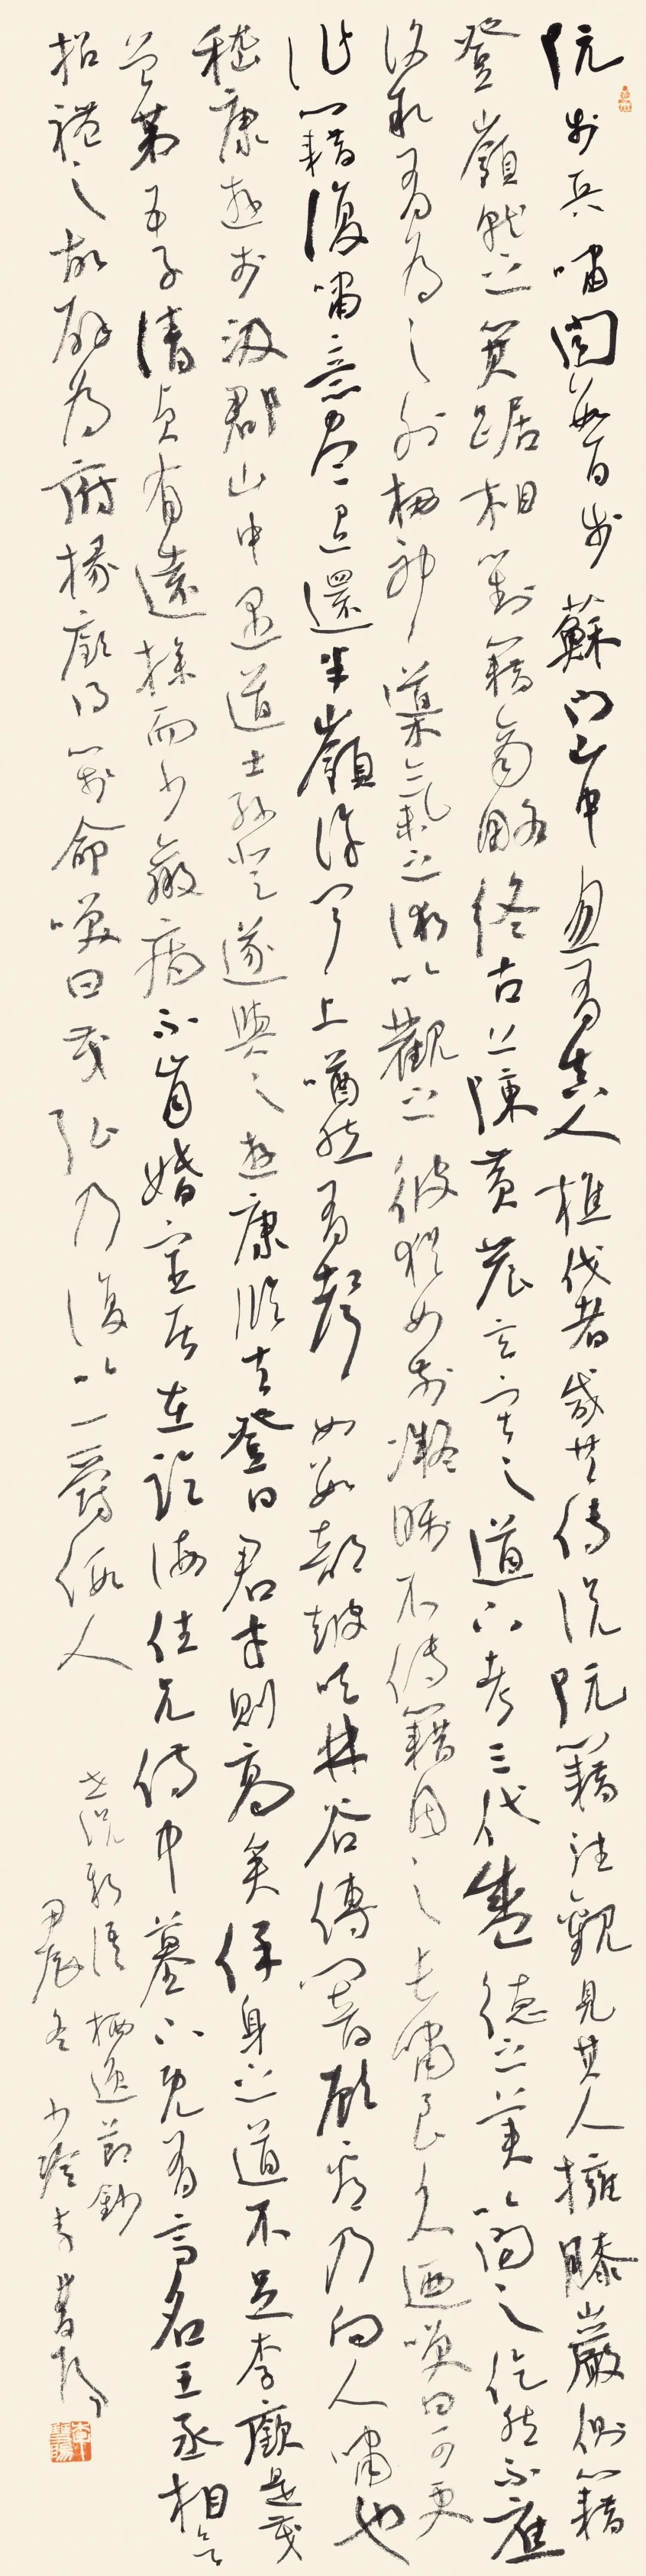 阮步兵嘯聞數百步蘇門山中忽有真人樵伐者咸共傳說阮籍往觀見其人擁膝巖側籍
登嶺就之箕踞相對籍商略終古上陳黃農玄寂之道下考三代盛德之美以問之仡然不應
復敘有為之外栖神導氣之術以觀之彼猶如前凝矚不轉籍因之長嘯良久迺笑曰可更
作籍復嘯意盡退還半嶺許聞上㗜然有聲如數部鼓吹林谷傳響顧看乃向人嘯也
嵇康遊於汲郡山中遇道士孫登遂與之遊康臨去登曰君才則高矣保身之道不足李廞是茂
曾第五子清貞有遠操而少羸病不肯婚宦居在臨海住兄侍中墓下既有高名王丞相欲
招禮之故辟為府掾廞得牋命笑曰茂弘乃復以一爵假人
世說新語栖逸節鈔
甲辰冬少陵李